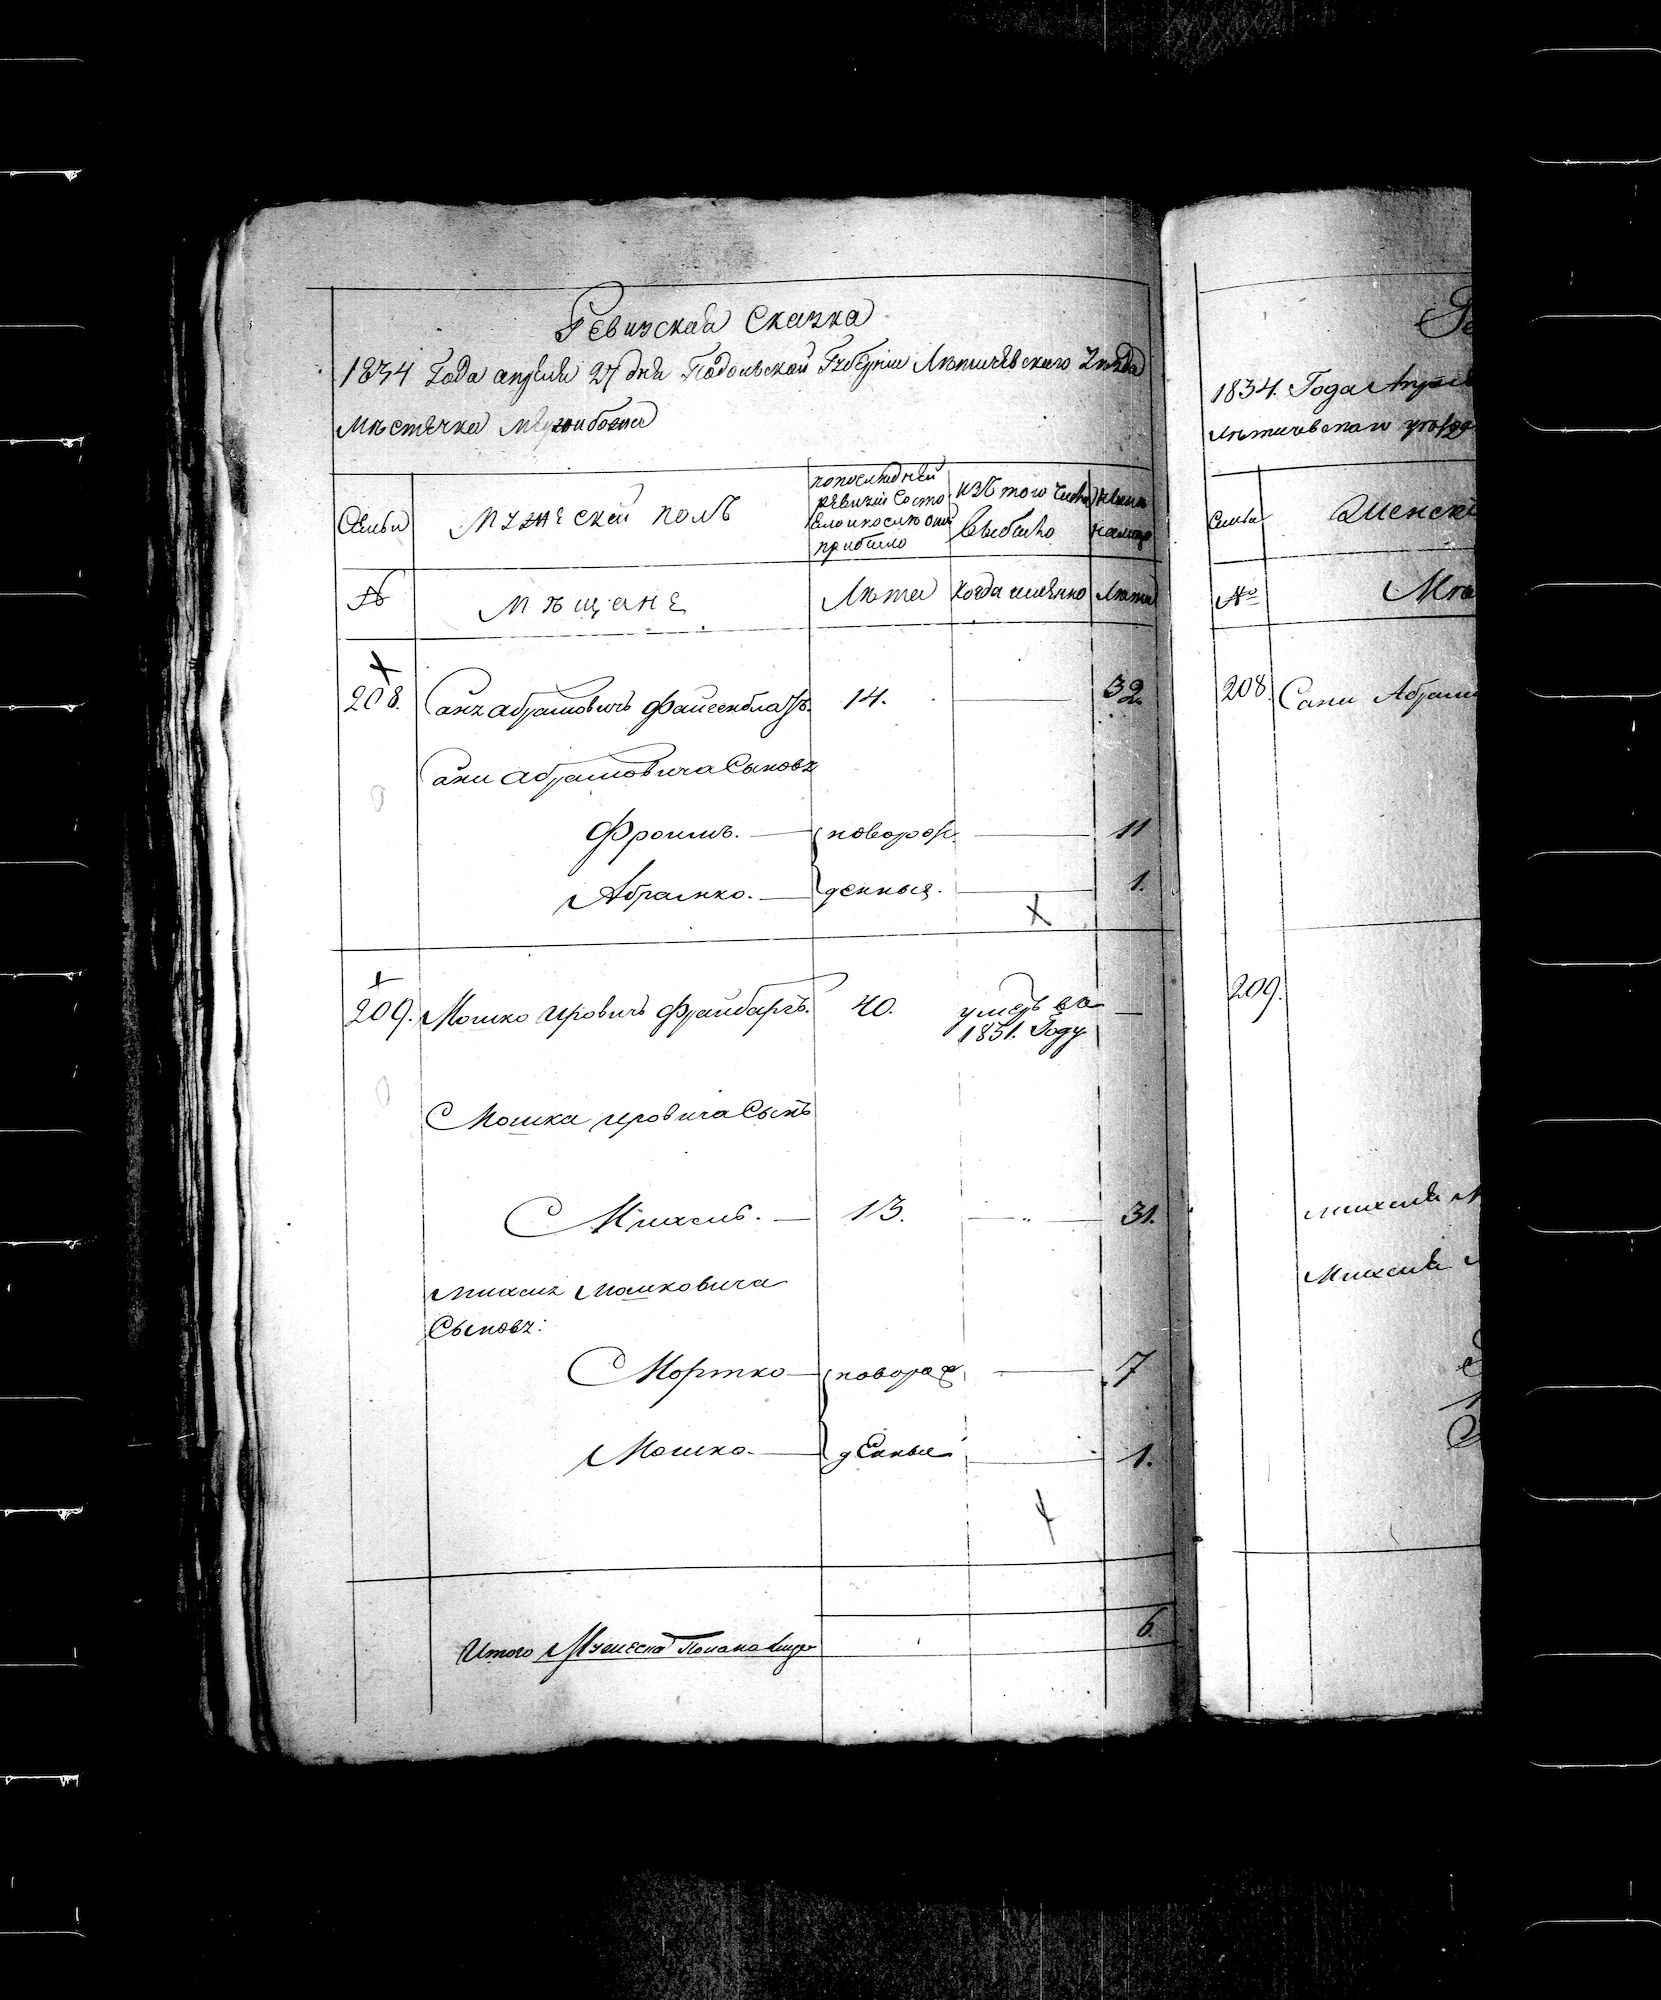 Ревизская Сказка
1834 Года апреля 27 дня Подольской Губернии Летичевского Уезда
Местечка Межибожа
Семьи
Мужеский полъ
по последней ревизии состояло и после оной прибыло
изъ того числа выбыло
ныне на лицо
№
мѣщане
Лѣта
когда именно
Лѣта
208.
Саня Абрамовичъ
14.
32
Сани Абрамовича Сыновя
Фроимъ.
новорож
11
Абрамко.
денныя.
1.
209.
Мошко Ировичъ Фрайбаргъ.
40.
умеръ въ
1831. Году
Мошка Ировича Сынъ
Михель.
13.
31.
Михеля Мошковича
Сыновя:
Мортко
новорож
7
Мошко.
денные
1.
Итого Мужеска Пола на лице
6.
1834. Года Апреля
летичевского уезда
Семьи
Женскі
№
Мѣ
208
Сани Абрам
209.
Михеля М
Михеля